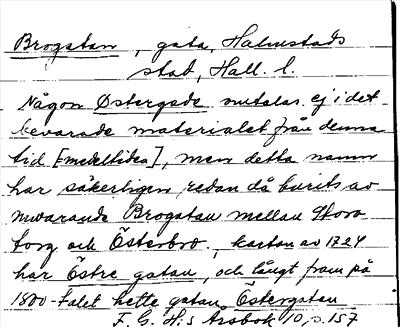 Brogatan, gata, Halmstads
stad, Hall. l.
Någon Østergade omtalas ej i det
bevarade materialet från denna
tid [medeltiden], men detta namn
har säkerligen redan då burits av
nuvarande Brogatan mellan Stora
torg och Österbro., kartan av 1724
har Östre gatan, och långt fram på
1800-talet hette gatan Östergatan
F. G. H:s Årsbok 10, s. 157